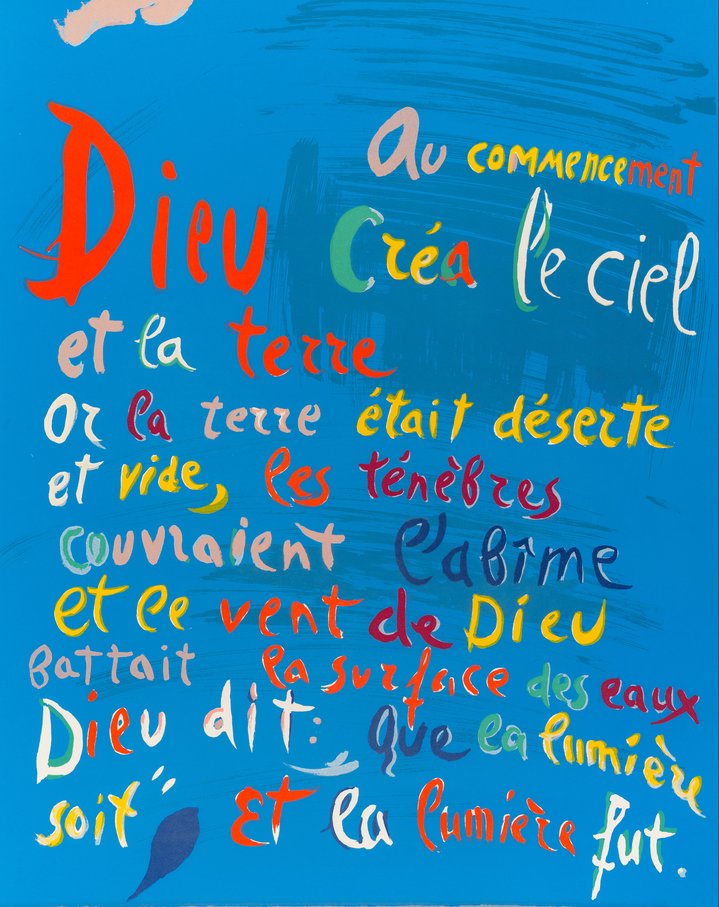 Au commencement
Dieu Créa le ciel
et la terre
Or la terre était déserte
et vide, les ténèbres
couvraient l'abîme
et le vent de Dieu
battait la surface des eaux
Dieu dit: que la lumière
soit" Et la lumière fut.